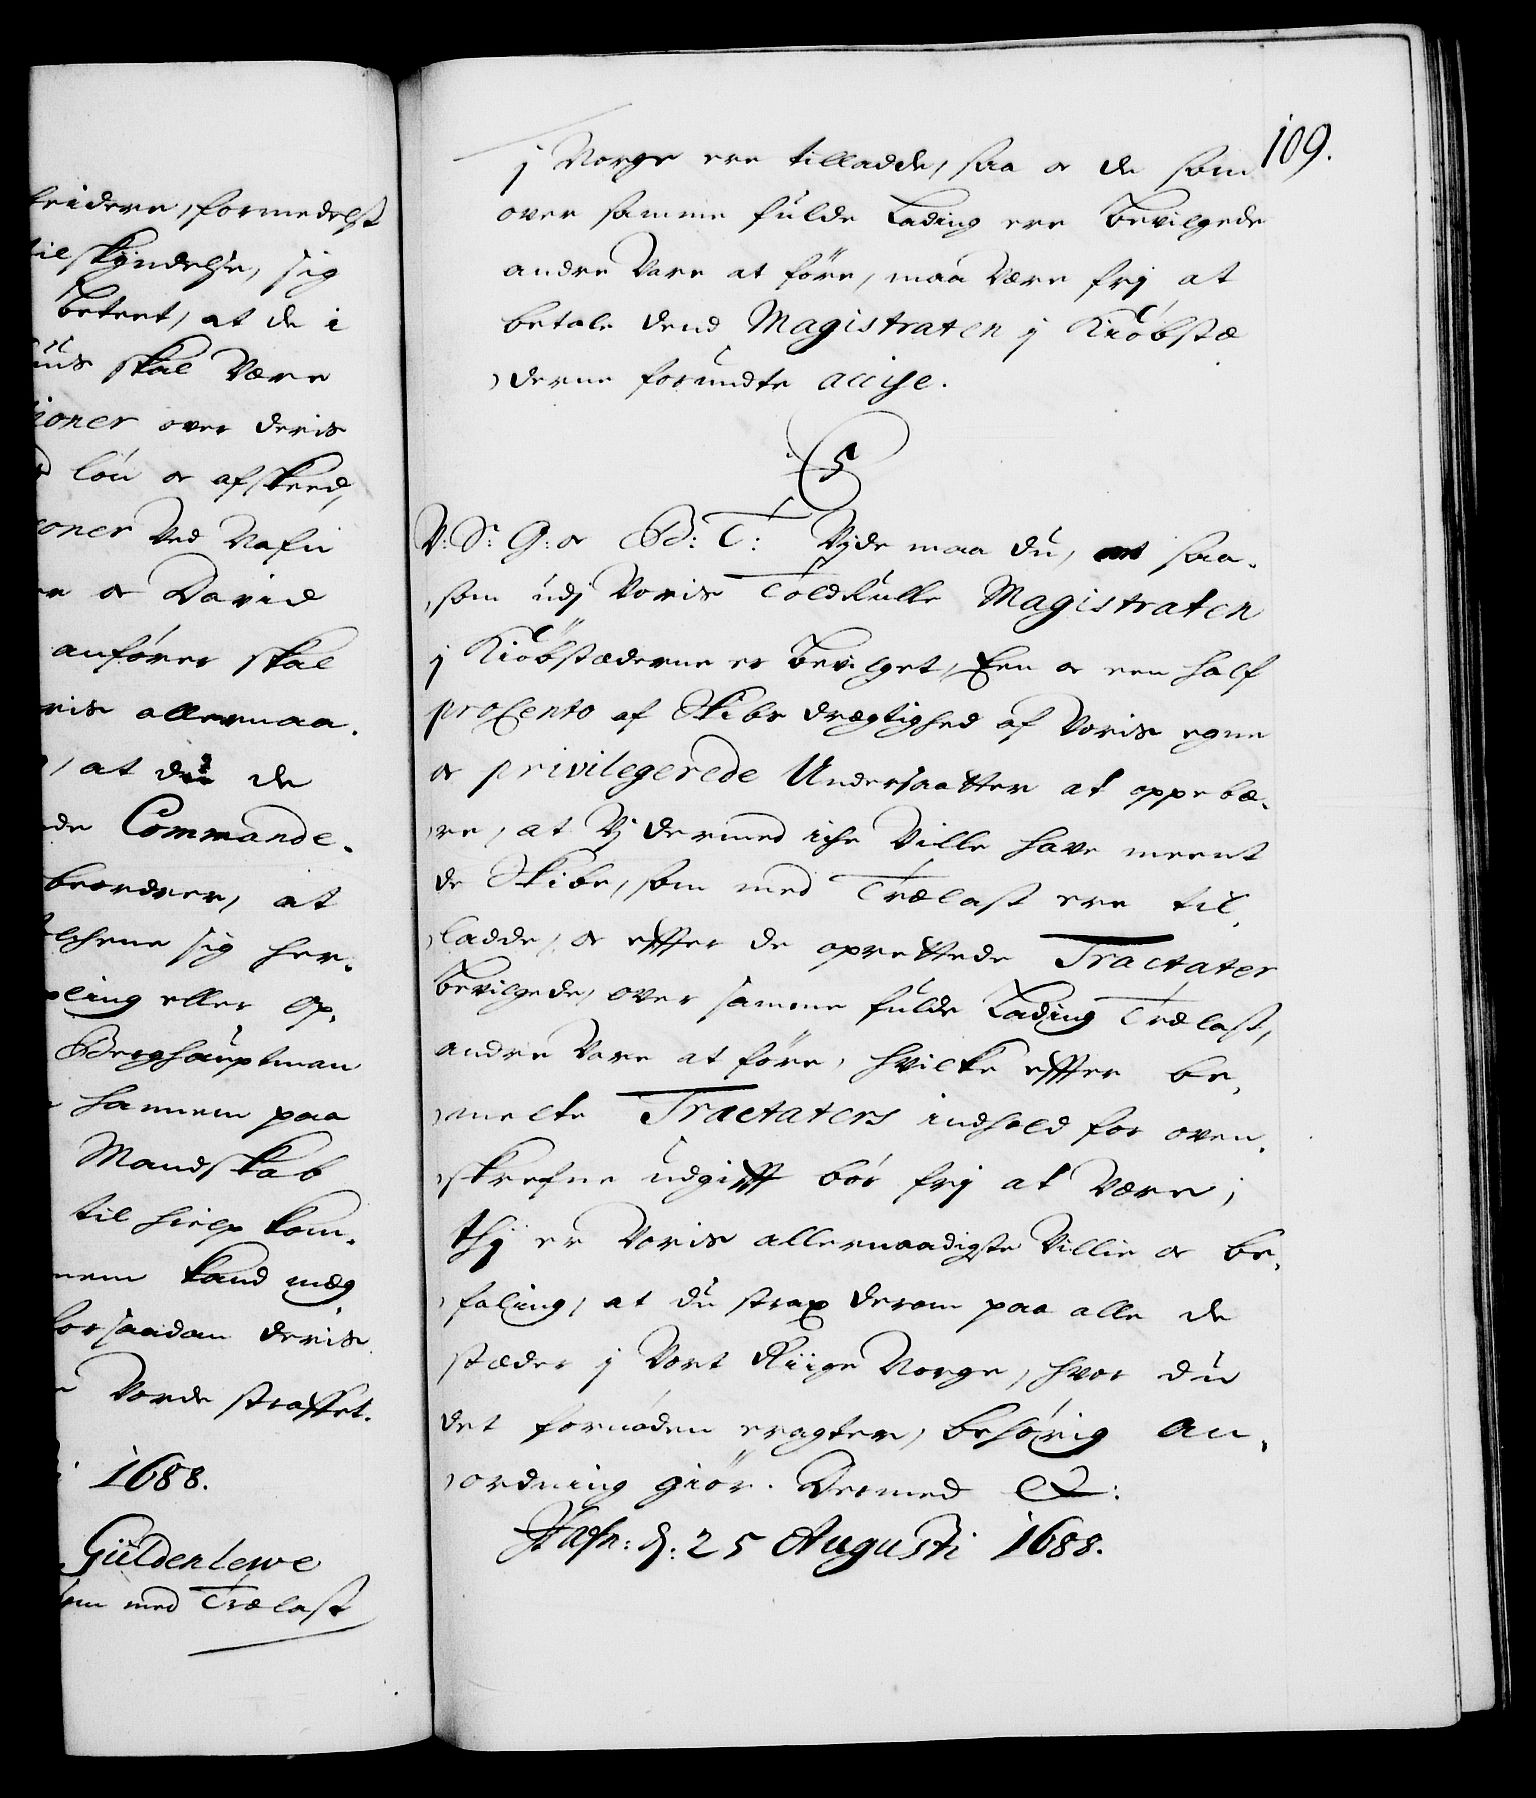 leidere, formedelst
tilskyndelse, sig
betent, at de i
uus skal Være
ioner over deris
løn og afskeed,
oner Ved Nafn
og David
anfører skal
ris allernaa-
at du de
de Commande-
beordrer, at
sig her-
pling eller op-
Berghauptman
hannem paa
Mandskab
til hielp kom-
nem kand mæg
for saadan deris
Vorde straffet.
1688.
Güldenlewe
som med Trælast
109.
j Norge ere tilladde, saa og de som
over samme fulde Lading ere bevilgede
andre Vare at føre, maa være frj at
betale dend Magistraten j Kiøbstæ-
derne forundte accise.
V: S: G: og B: T: Vjde maa du, at saa-
som udj Voris Told Rulle Magistraten
j Kiøbstæderne er bevilget, Een og een half
proCento af Skibs drægtighed af Voris egne
og privilegerede Undersaatter at oppebæ-
re, at Vj dermed iche Ville have meent
de Skibe, som med Trælast ere til-
ladde, og effter de oprettede Tractater
bevilgede, over samme fulde Lading Trælast,
andre Vare at føre, hvilke effter be-
melte Tractaters indhold for oven-
skrefne udgifft bør frj at være;
thj er Voris allernaadigste Villie og be-
faling, at du strax derom paa alle de
stæder j Vort Riige Norge, hvor du
det fornøden eragter, behørig an-
ordning giør. Dermed &:
Hafn: d: 25 Augusti 1688.